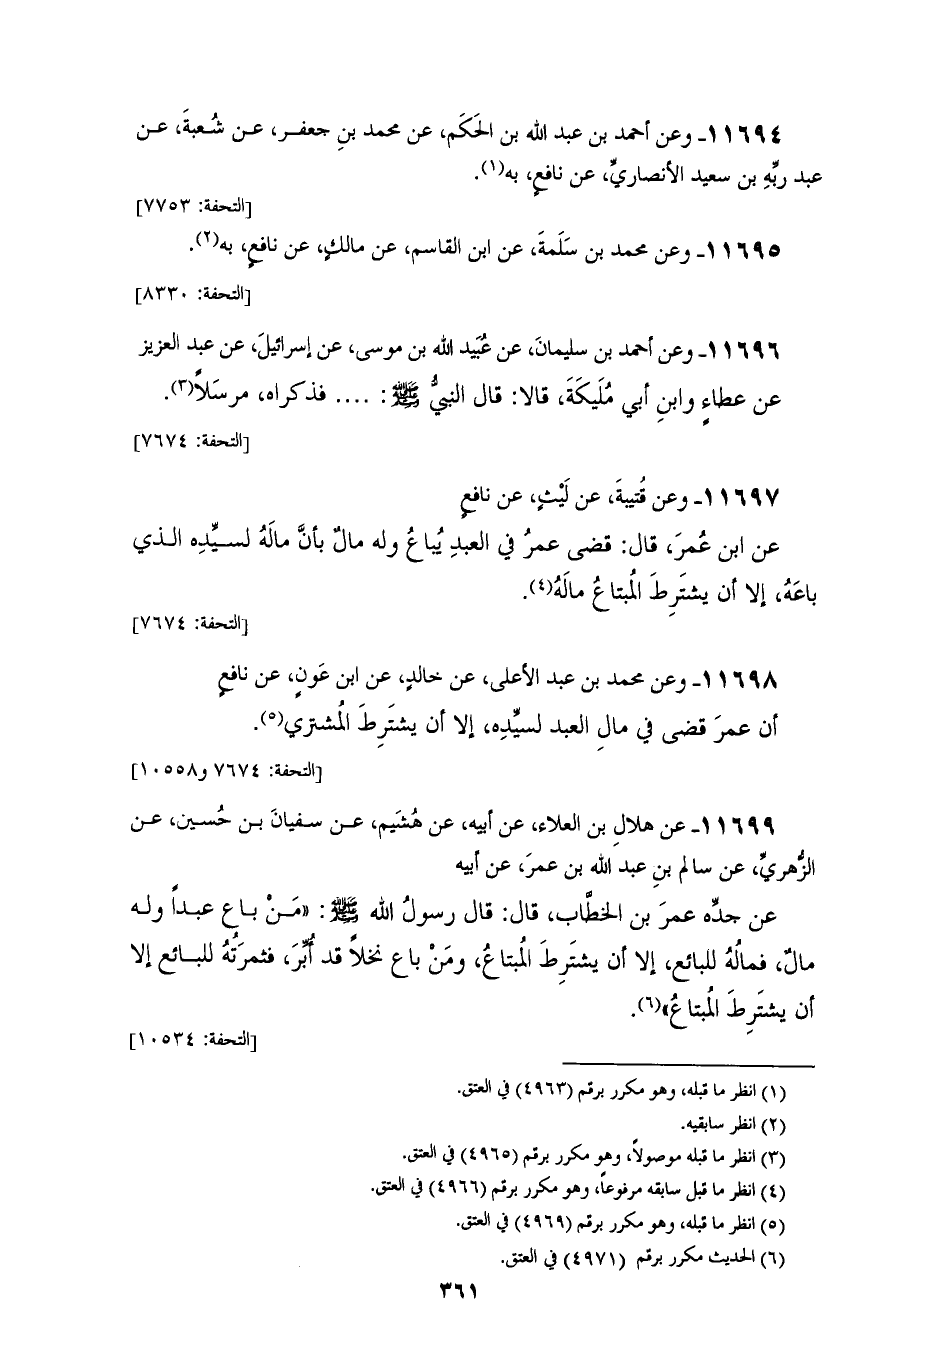 ١١٦٩٤ـ وعن أحمد بن عبد الله بن الحَكَم، عن محمد بنِ جعفر، عن شُعبةَ، عن
عبد ربِّهِ بن سعيد الأنصاريِّ، عن نافعٍ، به(١).
[التحفة: ٧٧٥٣]
١١٦٩٥ـ وعن محمد بن سَلَمةَ، عن ابن القاسم، عن مالكٍ، عن نافعٍ، به(٢).
[التحفة: ٨٣٣٠]
١١٦٩٦ـ وعن أحمد بن سليمانَ، عن عُبَيد الله بن موسى، عن إسرائيلَ، عن عبد العزيز
عن عطاءٍ وابنِ أبي مُلَيكَةَ، قالا: قال النبيُّ ﷺ: .... فذكراه، مرسَلاً(٣).
[التحفة: ٧٦٧٤]
١١٦٩٧ـ وعن قُتيبةَ، عن لَيْثٍ، عن نافعٍ
عن ابن عُمرَ، قال: قضى عمرُ في العبدِ يُباعُ وله مالٌ بأنَّ مالَهُ لسيِّدِه الذي
باعَهُ، إلا أن يشتَرِطَ المُبتاعُ مالَهُ(٤).
[التحفة: ٧٦٧٤]
١١٦٩٨ـ وعن محمد بن عبد الأعلى، عن خالدٍ، عن ابن عَونٍ، عن نافعٍ
أن عمرَ قضى في مالِ العبد لسيِّدِه، إلا أن يشتَرِطَ المُشتري(٥).
[التحفة: ٧٦٧٤ و١٠٥٥٨]
١١٦٩٩ـ عن هلالِ بن العلاء، عن أبيه، عن هُشَيم، عن سفيانَ بن حُسين، عن
الزُّهريِّ، عن سالم بنِ عبد الله بن عمرَ، عن أبيه
عن جدِّه عمرَ بن الخطَّاب، قال: قال رسولُ الله ﷺ: «مَنْ باع عبداً وله
مالٌ، فمالُهُ للبائع، إلا أن يشتَرِطَ المُبتاعُ، ومَنْ باع نخلاً قد أُبِّرَ، فثمرَتُهُ للبائع إلا
أن يشتَرِطَ المُبتاعُ»(٦).
[التحفة: ١٠٥٣٤]
(١) انظر ما قبله، وهو مكرر برقم (٤٩٦٣) في العتق.
(٢) انظر سابقيه.
(٣) انظر ما قبله موصولاً، وهو مكرر برقم (٤٩٦٥) في العتق.
(٤) انظر ما قبل سابقه مرفوعاً، وهو مكرر برقم (٤٩٦٦) في العتق.
(٥) انظر ما قبله، وهو مكرر برقم (٤٩٦٩) في العتق.
(٦) الحديث مكرر برقم (٤٩٧١) في العتق.
٣٦١